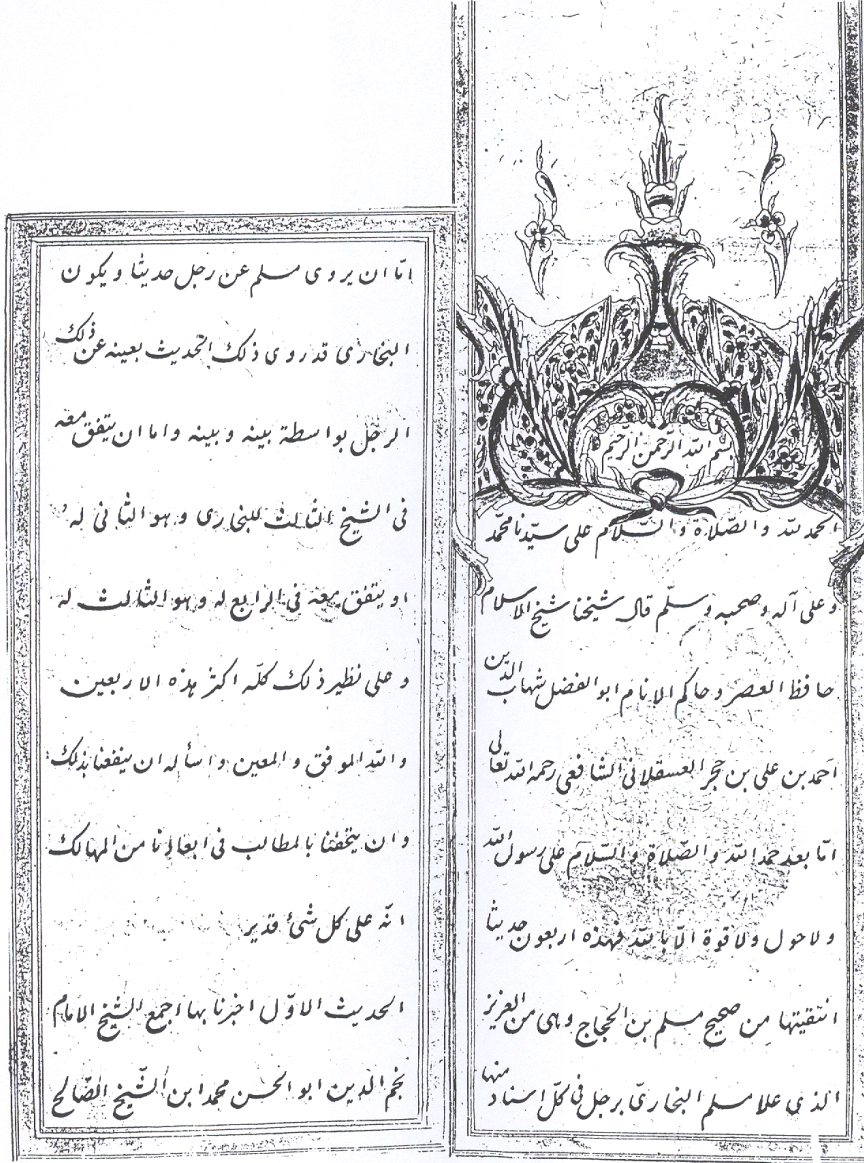 بسم الله الرحمن الرحيم
الحمد لله والصّلاة والسّلام على سيّدنا محمّد
وعلى آله وصحبه وسلّم قال شيخنا شيخ الاسلام
حافظ العصر وحاكم الانام ابو الفضل شهاب الدين
احمد بن على بن حجر العسقلانى الشافعى رحمه الله تعالى
امّا بعد حمد الله والصّلاة والسّلام على رسول الله
ولا حول ولا قوة الّا بالله فهذه اربعون حديثا
انتقيتها من صحيح مسلم بن الحجاج وهى من العزيز
الذى علا مسلم البخارىّ برجل فى كلّ اسناد منها
امّا ان يروى مسلم عن رجل حديثا ويكون
البخارى قد روى ذلك الحديث بعينه عن ذلك
الرجل بواسطة بينه وبينه واما ان يتفق معه
فى الشيخ الثالث للبخارى وهو الثانى له
او يتفق معه فى الرابع له وهو الثالث له
وعلى نظير ذلك كلّه اكثر هذه الاربعين
والله الموفق والمعين واسأله ان ينفعنا بذلك
وان يتحفنا بالمطالب فى ابعادنا من المهالك
انّه على كل شئ قدير
الحديث الاوّل اخبرنا بها اجمع الشيخ الامام
نجم الدين ابو الحسن محمد ابن الشّيخ الصّالح